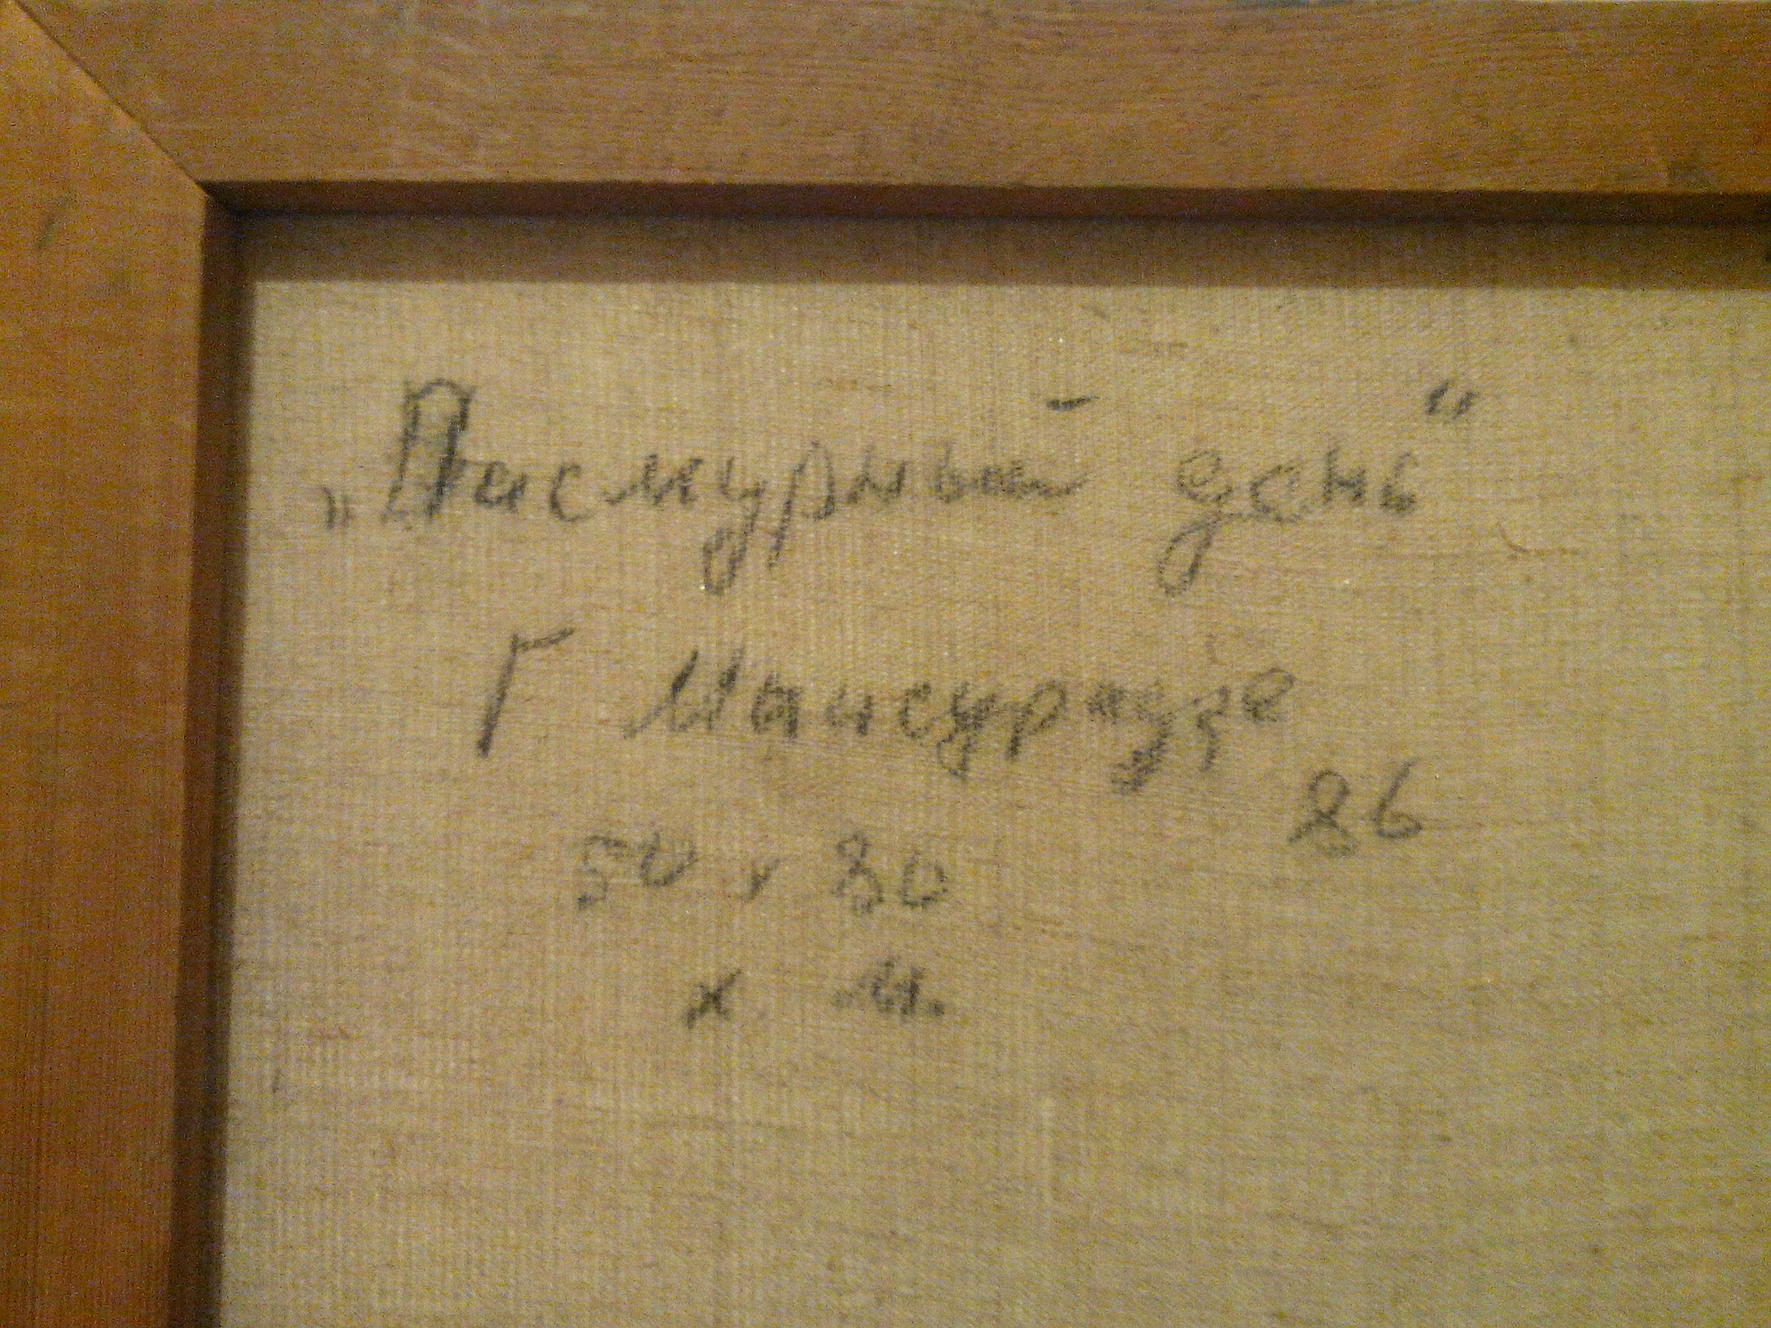 „Пасмурный день“
Г Майсурадзе
86
50 х 80
х. м.